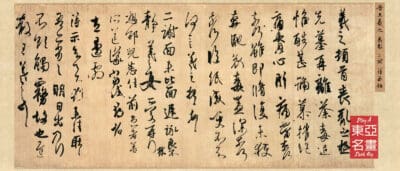 羲之頓首喪亂之極
先墓再離荼毒追
惟酷甚號慕摧絕
痛貫心肝痛當奈何
奈何雖即脩復未獲
奔馳哀毒益深奈何
奈何臨紙感哽不知
何言羲之頓首頓首
二謝面未比面遲詠良不
靜羲之女愛再拜
想邵兒悉佳前患者善
所送議當試尋省
左邊劇
得示知足下猶未佳耿耿
吾亦劣劣明日出乃行
不欲觸霧故也遲散
王羲之頓首
東亞
名畫